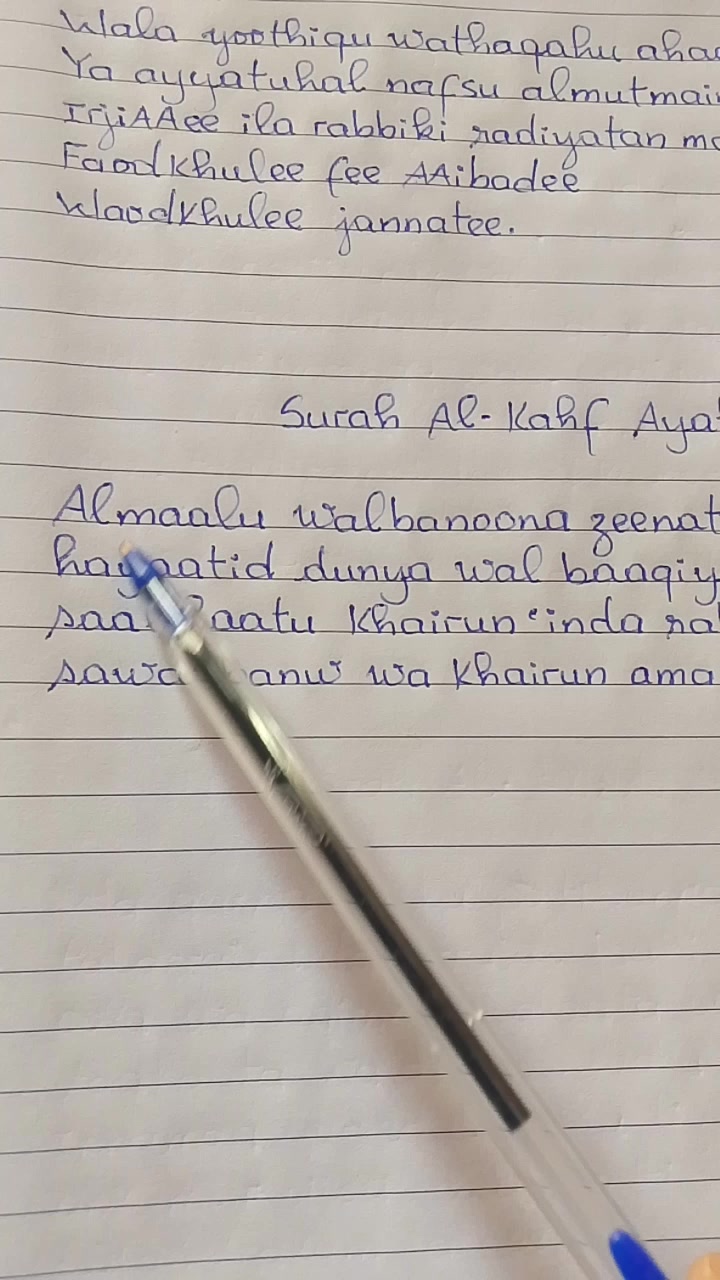 Wala yoothiqu wathaqahu aha
Ya ayyatuhal nafsu almutmai
IrjiAAee ila rabbiki radiyatan m
Faodkhulee fee AAibadee
Waodkhulee jannatee.
Surah Al-Kahf Aya
Almaalu walbanoona zeenat
dunya wal baaqiy
khairun 'inda ra
wa khairun ama